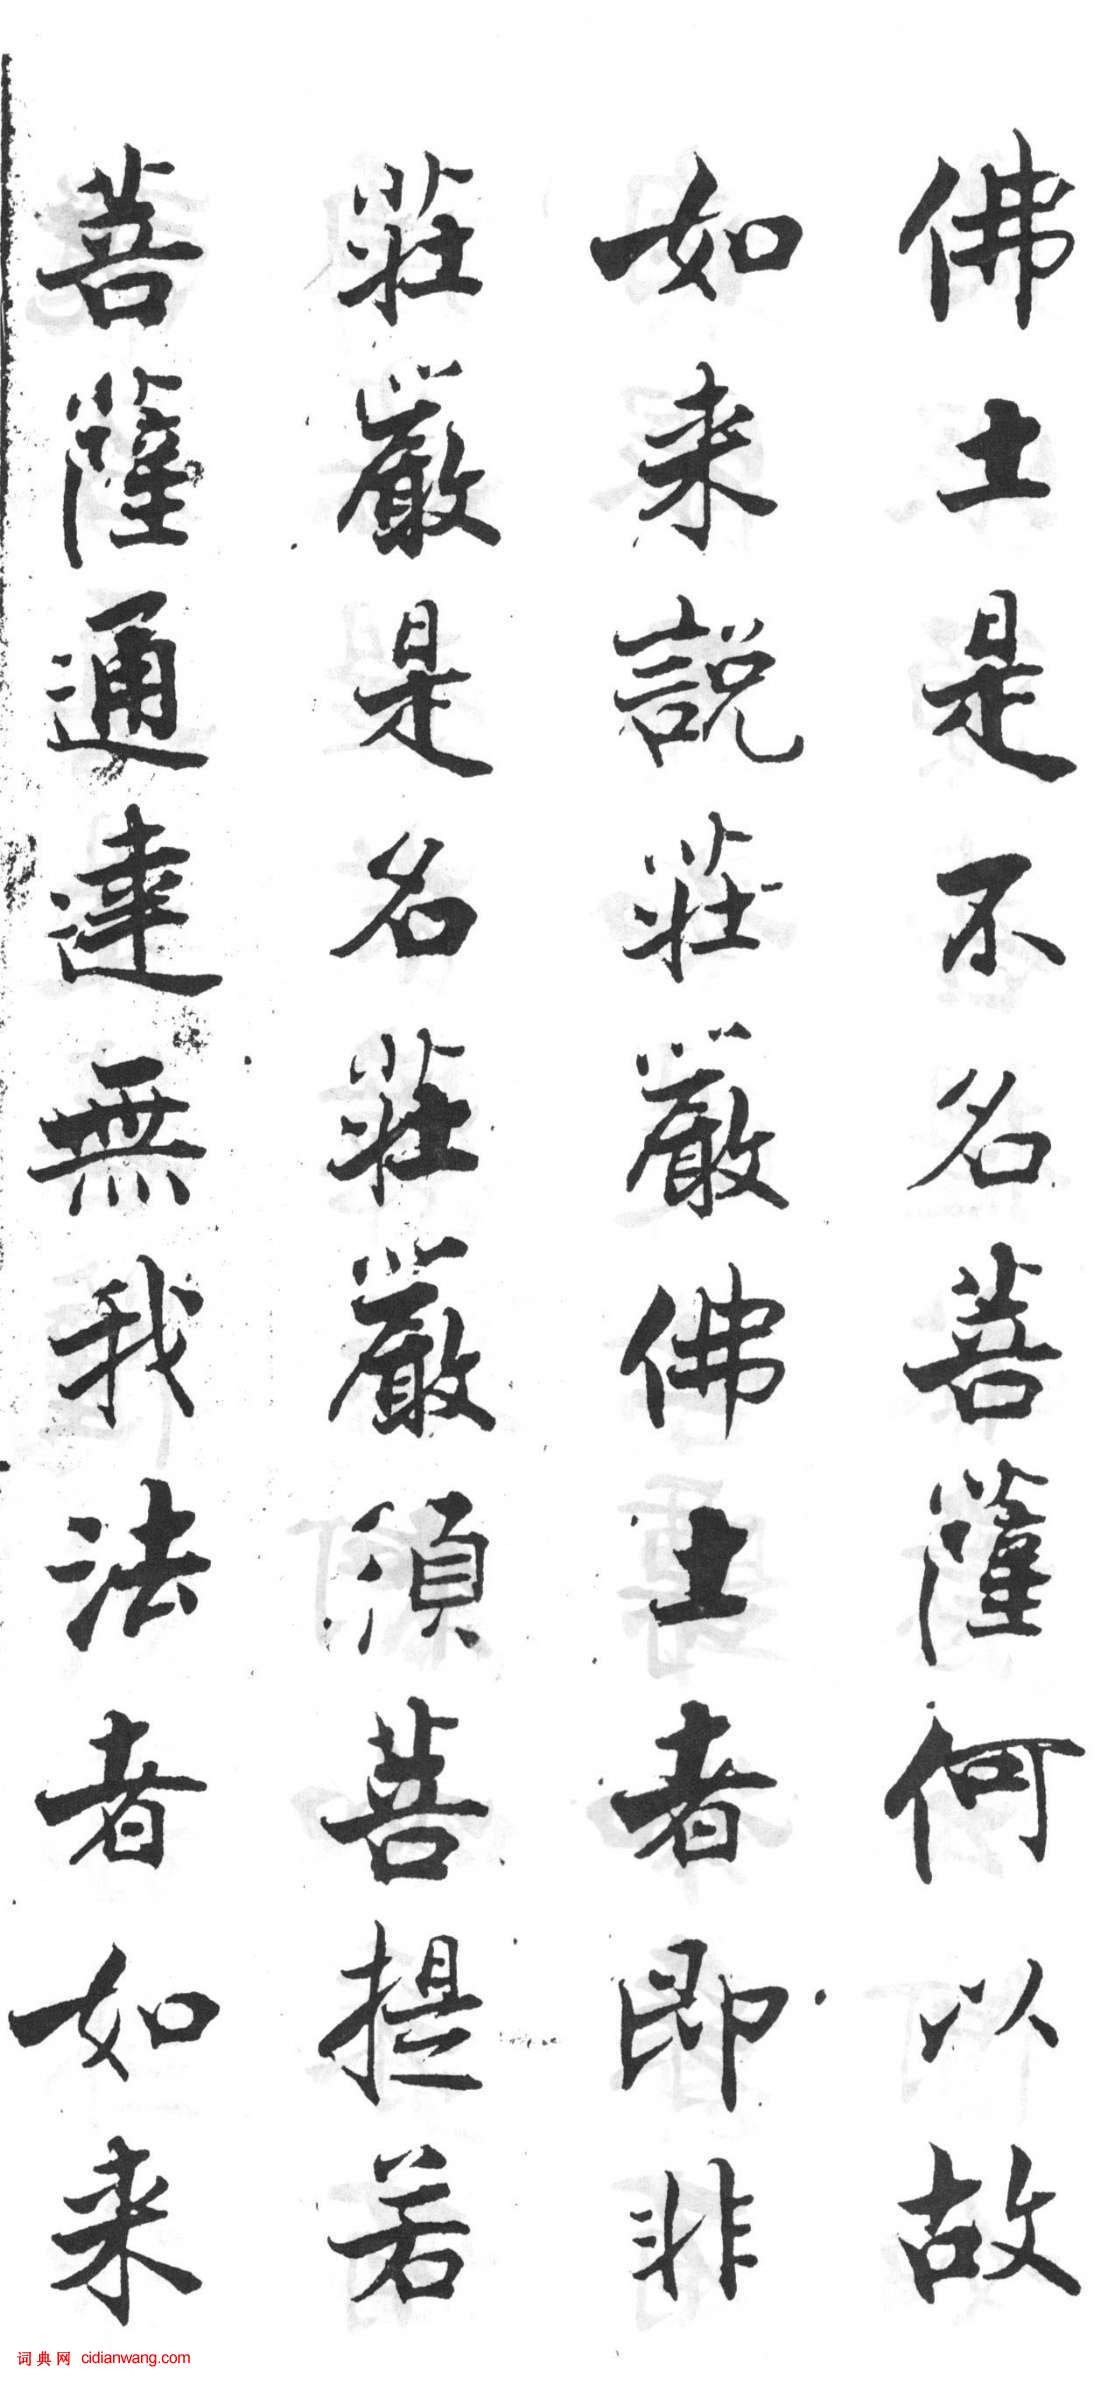 佛土是不名菩薩何以故
如来說莊嚴佛土者即非
莊嚴是名莊嚴須菩提若
菩薩通達無我法者如来
词典网 cidianwang.com